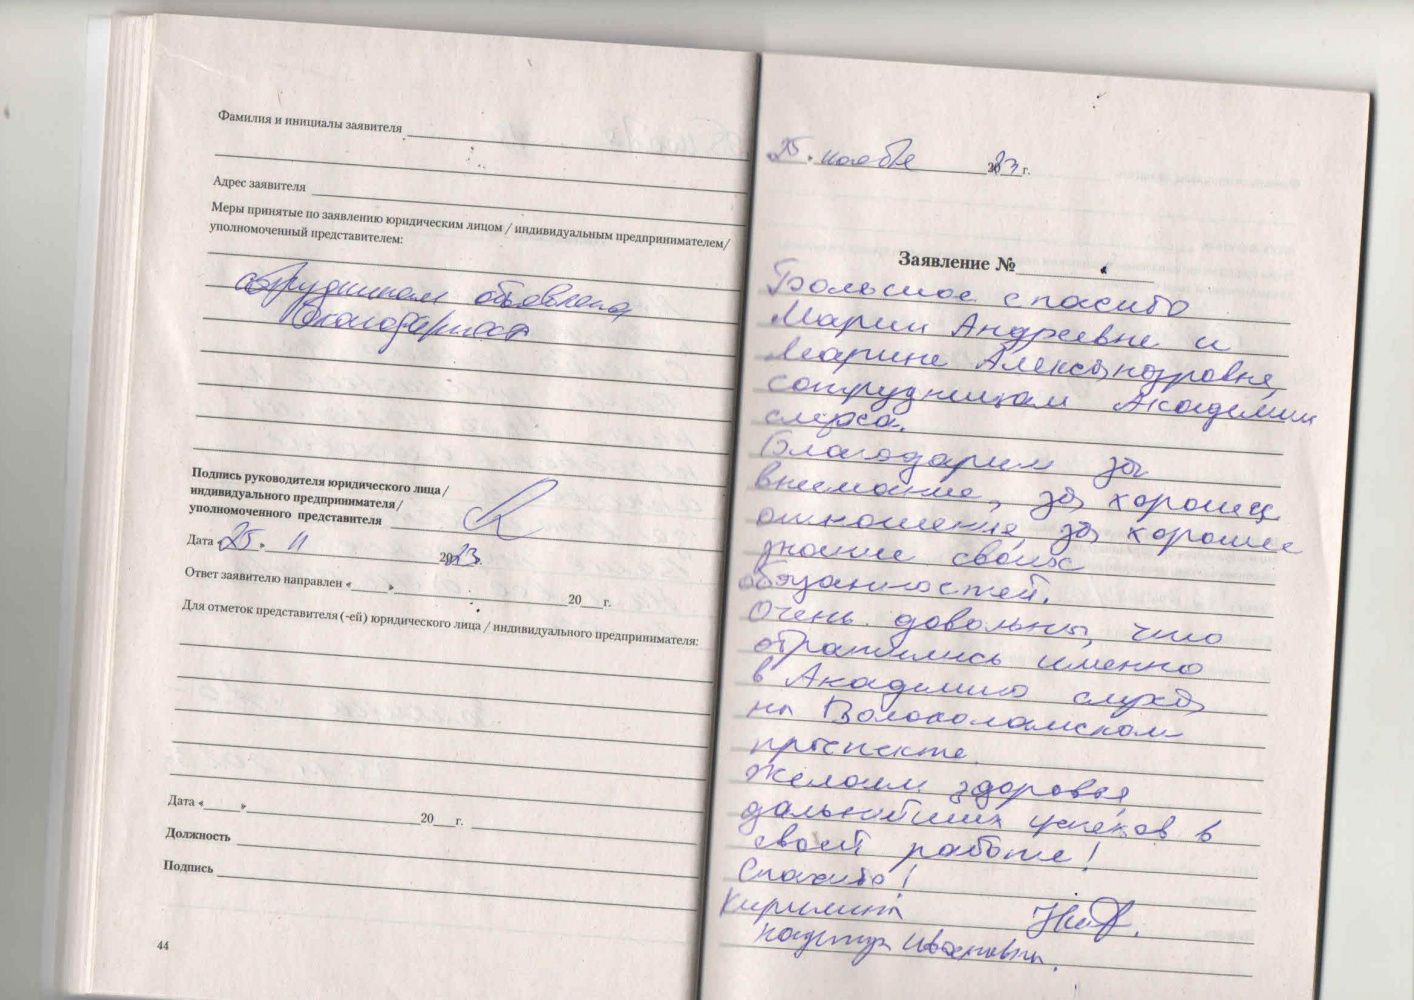 Фамилия и инициалы заявителя
Адрес заявителя
Меры принятые по заявлению юридическим лицом / индивидуальным предпринимателем/
уполномоченный представителем:
сотрудникам объявлена
благодарность
Подпись руководителя юридического лица /
индивидуального предпринимателя/
уполномоченного представителя
Дата «25» 11 2023
Ответ заявителю направлен «___»___ 20___г.
Для отметок представителя (-ей) юридического лица / индивидуального предпринимателя:
Дата «___»___ 20___г.
Должность
Подпись
44
25. ноября 2023г.
Заявление №
Большое спасибо
Марии Андреевне и
Марине Александровне,
сотрудницам Академии
слуха.
Благодарим за
внимание, за хорошее
отношение, за хорошее
знание своих
обязанностей.
Очень довольны, что
обратились именно
в Академию слуха
на Волоколамском
проспекте.
Желаем здоровья,
дальнейших успехов в
своей работе!
Спасибо!
Ивановна.